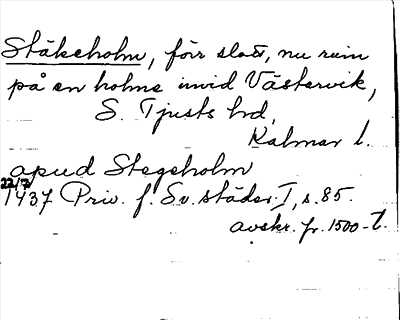 Stäkeholm, förr slott, nu ruin
på en holme invid Västervik,
S. Tjusts hd,
Kalmar l.
apud Stegeholm
22/7
1437 Priv. f. Sv. städer I, s. 85.
avskr. fr. 1500-t.